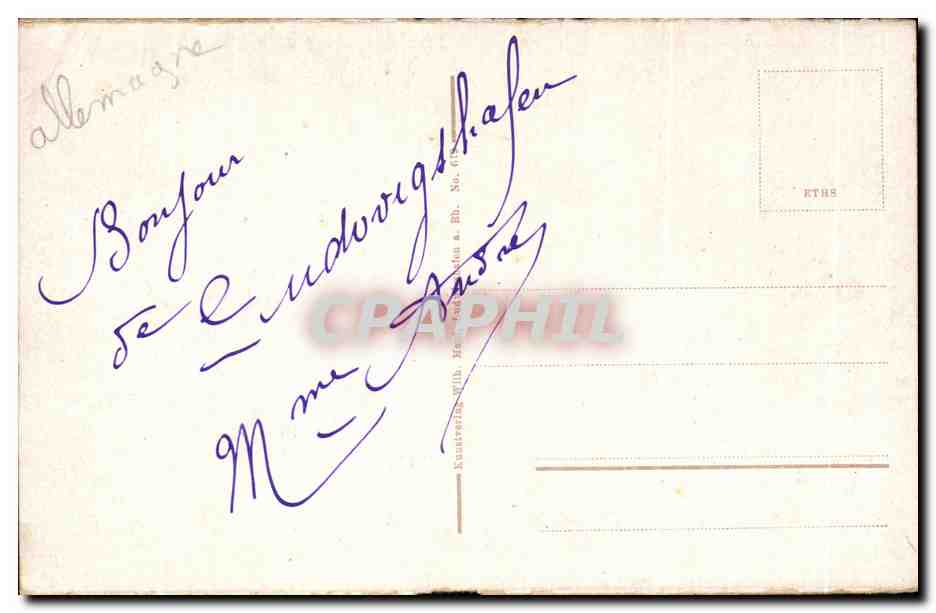 allemagne
Bonjour
de Ludovigshafen
Mme André
Kunstverlag Wilh. Ludwigshafen a. Rh. No.
ETHS
CPAPHIL